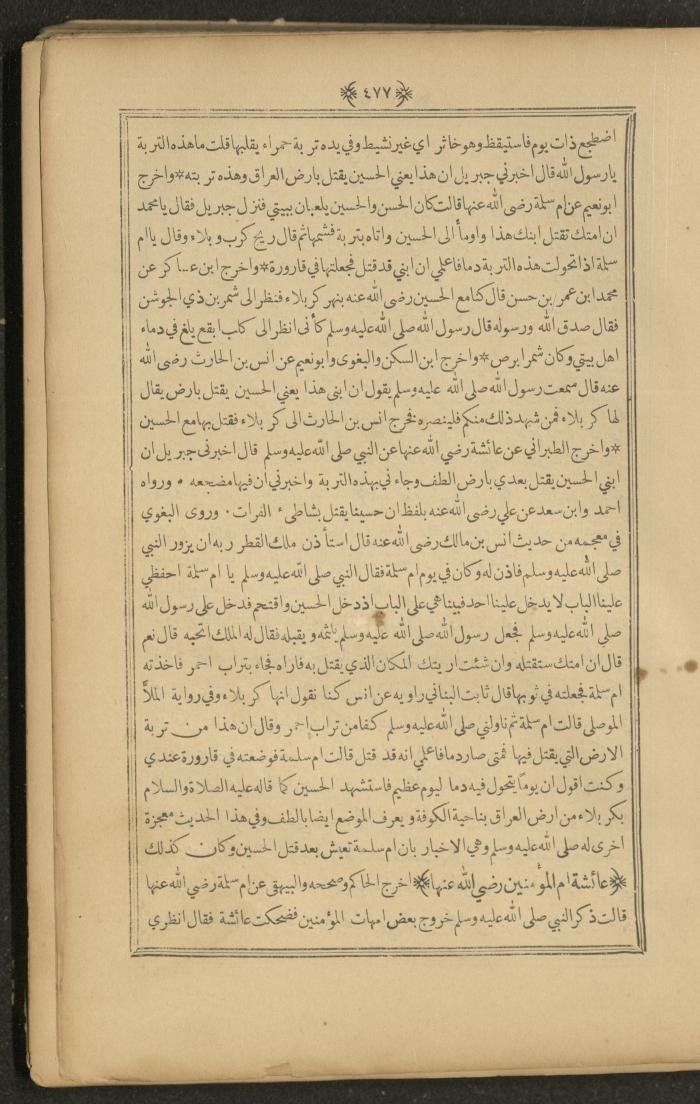 ﴿٤٧٧﴾
اضطجع ذات يوم فاستيقظ وهو خاثر اي غير نشيط وفي يده تربة حمراء يقلبها قلت ما هذه التربة
يا رسول الله قال اخبرني جبريل ان هذا يعني الحسين يقتل بارض العراق وهذه تربته * واخرج
ابو نعيم عن ام سلمة رضى الله عنها قالت كان الحسن والحسين يلعبان ببيتي فنزل جبريل فقال يا محمد
ان امتك تقتل ابنك هذا واومأ الى الحسين واتاه بتربة فشمها ثم قال ريح كرب وبلاء وقال يا ام
سلمة اذا تحولت هذه التربة دما فاعلمي ان ابني قد قتل فجعلتها في قارورة * واخرج ابن عساكر عن
محمد ابن عمر بن حسن قال كنا مع الحسين رضى الله عنه بنهر كربلاء فنظر الى شمر بن ذي الجوشن
فقال صدق الله ورسوله قال رسول الله صلى الله عليه وسلم كأنى انظر الى كلب ابقع يلغ في دماء
اهل بيتي وكان شمر ابرص * واخرج ابن السكن والبغوى وابو نعيم عن انس بن الحارث رضى الله
عنه قال سمعت رسول الله صلى الله عليه وسلم يقول ان ابنى هذا يعني الحسين يقتل بارض يقال
لها كربلاء فمن شهد ذلك منكم فلينصره فخرج انس بن الحارث الى كربلاء فقتل بها مع الحسين
* واخرج الطبراني عن عائشة رضي الله عنها عن النبي صلى الله عليه وسلم قال اخبرنى جبريل ان
ابني الحسين يقتل بعدي بارض الطف وجاءني بهذه التربة واخبرني ان فيها مضجعه • ورواه
احمد وابن سعد عن علي رضى الله عنه بلفظ ان حسينا يقتل بشاطىء الفرات . وروى البغوي
في معجمه من حديث انس بن مالك رضى الله عنه قال استأذن ملك القطر ربه ان يزور النبي
صلى الله عليه وسلم فاذن له وكان في يوم ام سلمة فقال النبي صلى الله عليه وسلم يا ام سلمة احفظي
علينا الباب لا يدخل علينا احد فبينا هي على الباب اذ دخل الحسين واقتحم فدخل على رسول الله
صلى الله عليه وسلم فجعل رسول الله صلى الله عليه وسلم يلثمه ويقبله فقال له الملك اتحبه قال نعم
قال ان امتك ستقتله وان شئت اريتك المكان الذي يقتل به فاراه فجاء بتراب احمر فاخذته
ام سلمة فجعلته في ثوبها قال ثابت البناني راويه عن انس كنا نقول انها كربلاء وفي رواية الملاَّ
الموصلى قالت ام سلمة ثم ناولني صلى الله عليه وسلم كفا من تراب احمر وقال ان هذا من تربة
الارض التي يقتل فيها فمتى صار دما فاعلمي انه قد قتل قالت ام سلمة فوضعته في قارورة عندي
وكنت اقول ان يومًا يتحول فيه دما ليوم عظيم فاستشهد الحسين كما قاله عليه الصلاة والسلام
بكربلاء من ارض العراق بناحية الكوفة ويعرف الموضع ايضا بالطف وفي هذا الحديث معجزة
اخرى له صلى الله عليه وسلم وهي الاخبار بان ام سلمة تعيش بعد قتل الحسين وكان كذلك
﴿عائشة ام المؤمنين رضي الله عنها﴾ اخرج الحاكم وصححه والبيهقى عن ام سلمة رضي الله عنها
قالت ذكر النبي صلى الله عليه وسلم خروج بعض امهات المؤمنين فضحكت عائشة فقال انظري